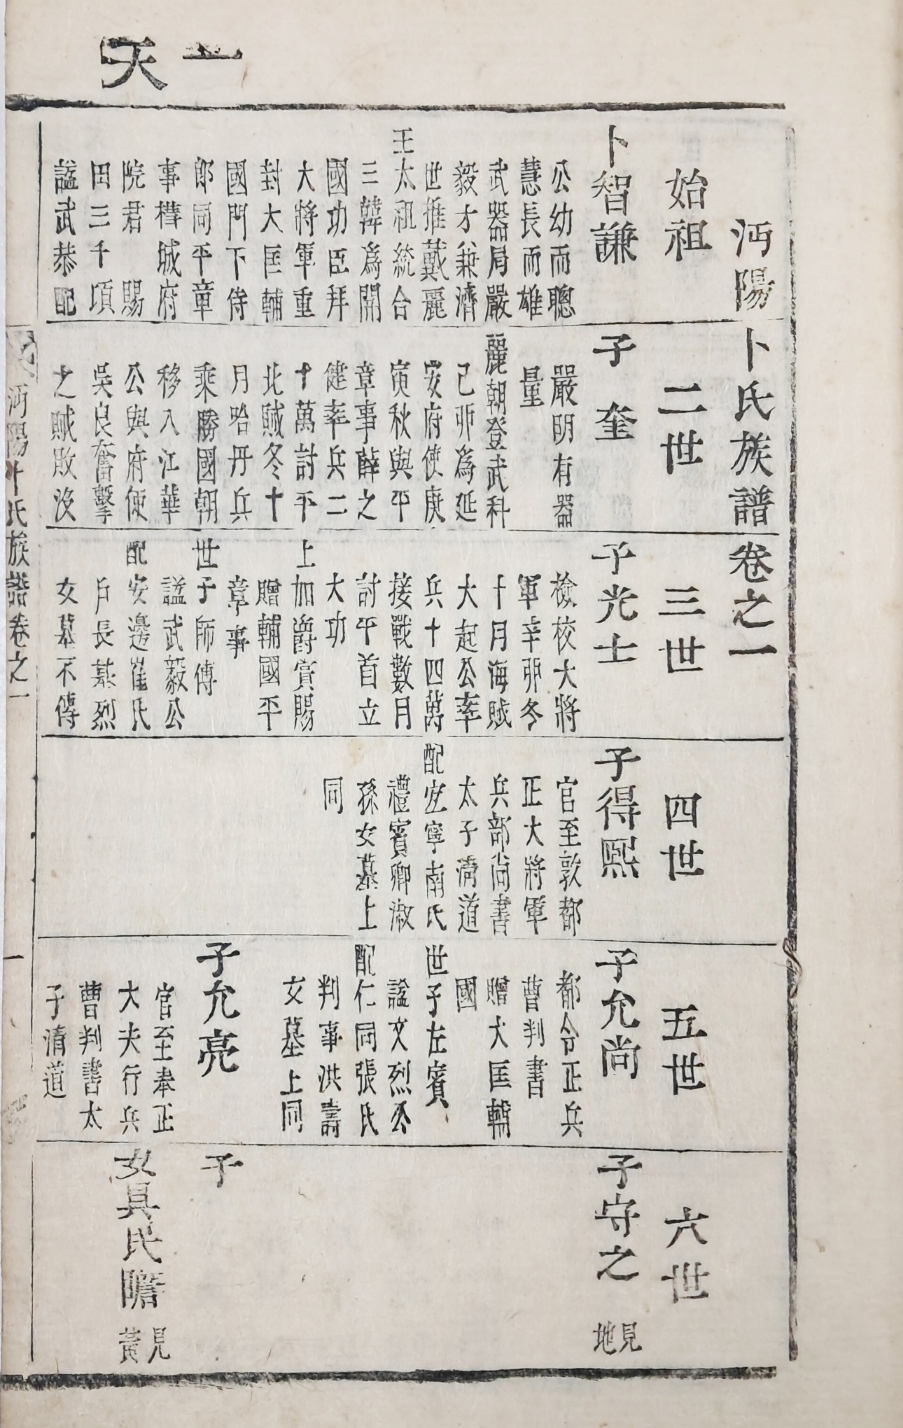 天一
沔陽卜氏族譜卷之一
始祖
卜智謙
公幼而聰
慧長而雄
武器局嚴
毅才兼濟
世推戴麗
王太祖統合
三韓爲開
國功臣拜
大將軍重
封大匡輔
國門下侍
郎同平章
事樺城府
院君 賜
田三千項
諡武恭配
二世
子奎
嚴明有器
量
麗朝登武科
己卯爲延
安府使庚
寅秋與平
章事薛之
健率兵二
十萬討平
北賊冬十
月哈丹兵
乘勝國朝
移入江華
公與府使
吳良奮擊
之賊敗沒
三世
子光士
檢校大將
軍辛卯冬
十月海賊
大起公率
兵十四萬
接戰數月
討平首立
大功
上加爵賞賜
贈輔國平
章事
世子師傅
諡武毅公
配安邊崔氏
戶長某烈
女墓不傳
四世
子得熙
官至敦都
正大將軍
兵部尙書
太子淸道
配宜寧南氏
禮賓卿淑
孫女墓上
同
五世
子允尙
都令正兵
曹判書
贈大匡輔
國
世子左賓
諡文烈公
配仁同張氏
判事洪壽
女墓上同
子允亮
官至奉正
大夫行兵
曹判書太
子淸道
六世
子守之
見地
子
女具氏瞻
見黃
沔陽卜氏族譜卷之一
一